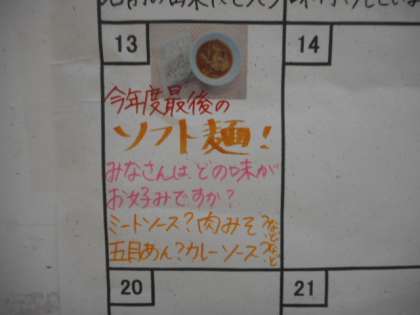 13
14
今年度最後の
ソフト麺!
みなさんは、どの味が
お好みですか?
ミートソース?肉みそ?
五目あん?カレーソース?など
20
21